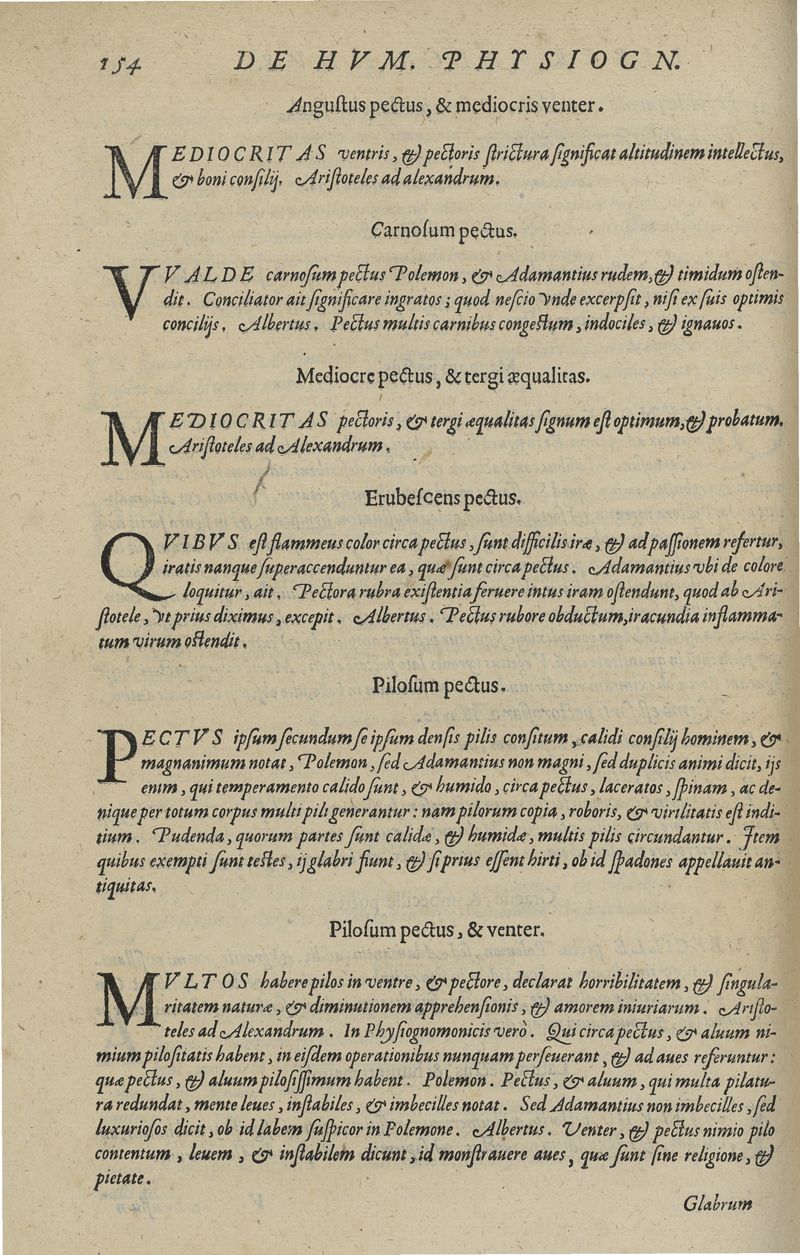 154 DE HVM. PHYSIOGN.
Anguſtus pectus, & mediocris venter.
MEDIOCRITAS ventris, & pectoris ſtrictura ſignificat altitudinem intellectus,
& boni conſilij. Ariſtoteles ad alexandrum.
Carnoſum pectus.
VVALDE carnoſum pectus Polemon, & Adamantius rudem, & timidum oſten-
dit. Conciliator ait ſignificare ingratos; quod neſcio vnde excerpſit, niſi ex ſuis optimis
concilijs. Albertus. Pectus multis carnibus congeſtum, indociles, & ignauos.
Mediocre pectus, & tergi æqualitas.
MEDIOCRITAS pectoris, & tergi æqualitas ſignum eſt optimum, & probatum.
Ariſtoteles ad Alexandrum.
Erubeſcens pectus.
QVIBVS eſt flammeus color circa pectus, ſunt difficilis iræ, & ad paſſionem refertur,
iratis nanque ſuperaccenduntur ea, quæ ſunt circa pectus. Adamantius vbi de colore
loquitur, ait. Pectora rubra exiſtentia feruere intus iram oſtendunt, quod ab Ari-
ſtotele, vt prius diximus, excepit. Albertus. Pectus rubore obductum, iracundia inflamma-
tum virum oſtendit.
Piloſum pectus.
PECTVS ipſum ſecundum ſe ipſum denſis pilis conſitum, calidi conſilij hominem, &
magnanimum notat, Polemon, ſed Adamantius non magni, ſed duplicis animi dicit, ijs
enim, qui temperamento calido ſunt, & humido, circa pectus, laceratos, ſpinam, ac de-
nique per totum corpus multi pili generantur: nam pilorum copia, roboris, & virilitatis eſt indi-
tium. Pudenda, quorum partes ſunt calidæ, & humidæ, multis pilis circundantur. Item
quibus exempti ſunt teſtes, ij glabri fiunt, & ſi prius eſſent hirti, ob id ſpadones appellauit an-
tiquitas.
Piloſum pectus, & venter.
MVLTOS habere pilos in ventre, & pectore, declarat horribilitatem, & ſingula-
ritatem naturæ, & diminutionem apprehenſionis, & amorem iniuriarum. Ariſto-
teles ad Alexandrum. In Phyſiognomonicis verò. Qui circa pectus, & aluum ni-
mium piloſitatis habent, in eiſdem operationibus nunquam perſeuerant, & ad aues referuntur:
quæ pectus, & aluum piloſiſſimum habent. Polemon. Pectus, & aluum, qui multa pilatu-
ra redundat, mente leues, inſtabiles, & imbecilles notat. Sed Adamantius non imbecilles, ſed
luxurioſos dicit, ob id labem ſuſpicor in Polemone. Albertus. Venter, & pectus nimio pilo
contentum, leuem, & inſtabilem dicunt, id monſtrauere aues, quæ ſunt ſine religione, &
pietate.
Glabrum